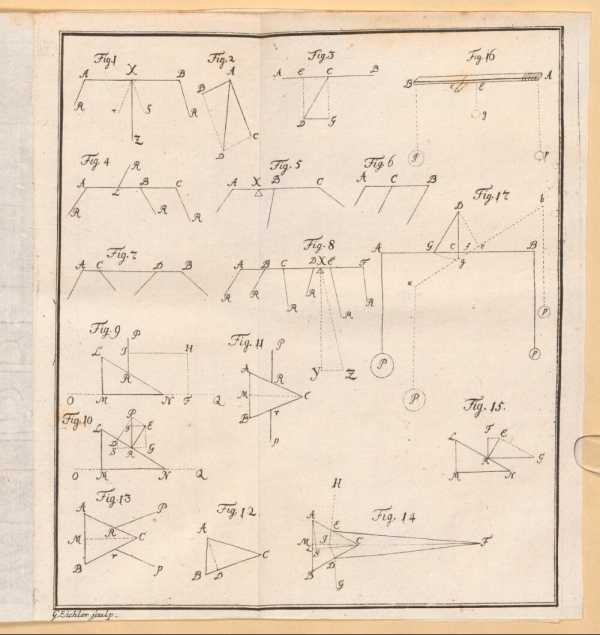 Fig.1
A X B
R r S R
Z
Fig.2
A
B
C
D
Fig.3
A E C B
D G
Fig.16
B A
E
g
Fig.4
R
A L B C
R R R
Fig.5
A X B C
Fig.6
A C B
Fig.7
A C D B
Fig.8
A B C D X E F
R R R R R R
Y Z
Fig.17
D b
A G C B
g
P P p p
Fig.9
P
L I H
R
O M N F Q
Fig.11
P
A R
M C
B r
p
Fig.10
P
L E
D
S R G
O M N Q
Fig.15.
L F E
R G
M N
Fig.13
A P
R
M C
r
B p
Fig.12
A
C
B D
Fig.14
H
A E
M I C F
S
B D
G
G. Eichler sculp.